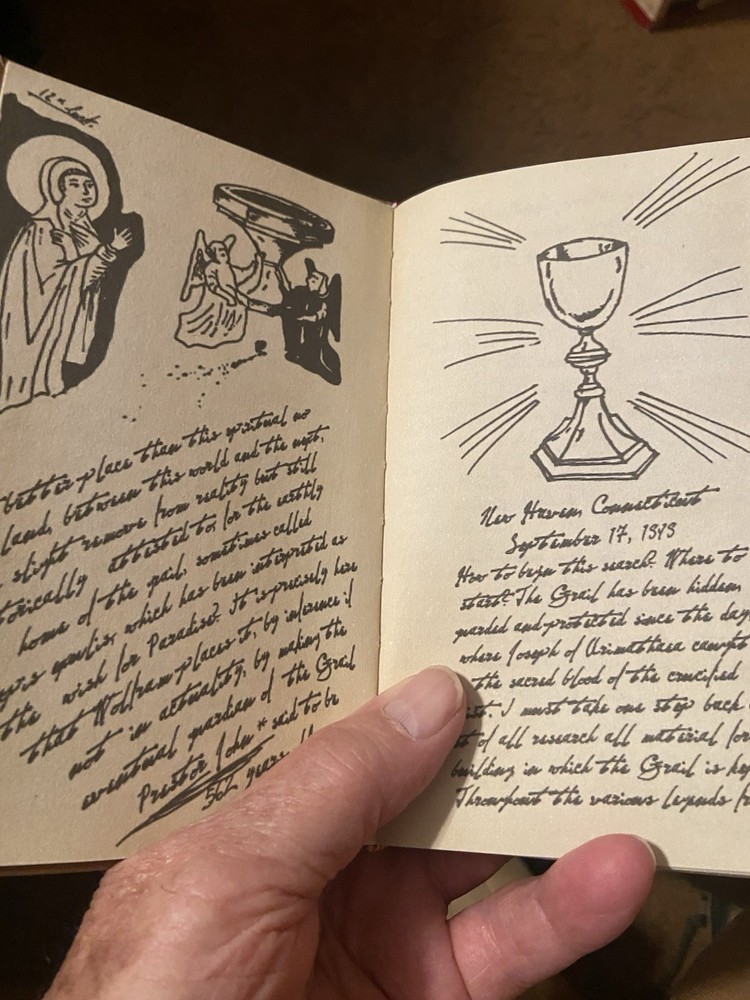 12th Cent.
better place than this spiritual no
land, between this world and the next,
slight remove from reality but still
torically attested to, for the earthly
home of the grail, sometimes called
which has been interpreted as
the wish for Paradise? It is precisely here
that Wolfram places it, by inference if
not in actuality, by making the
eventual guardian of the Grail
Prestor John * said to be
562 years
New Haven, Connecticut
September 17, 1898
How to begin this search? Where to
start? The Grail has been hidden,
guarded and protected since the day
where Joseph of Arimathaea caught
the sacred blood of the crucified
I must take one step back
of all research all material for
building in which the Grail is kep
Throughout the various legends fr